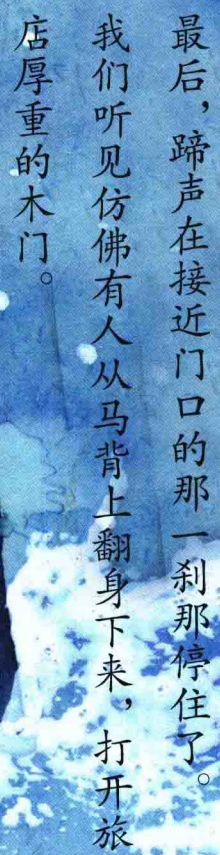 最后，蹄声在接近门口的那一刹那停住了。
我们听见仿佛有人从马背上翻身下来，打开旅
店厚重的木门。